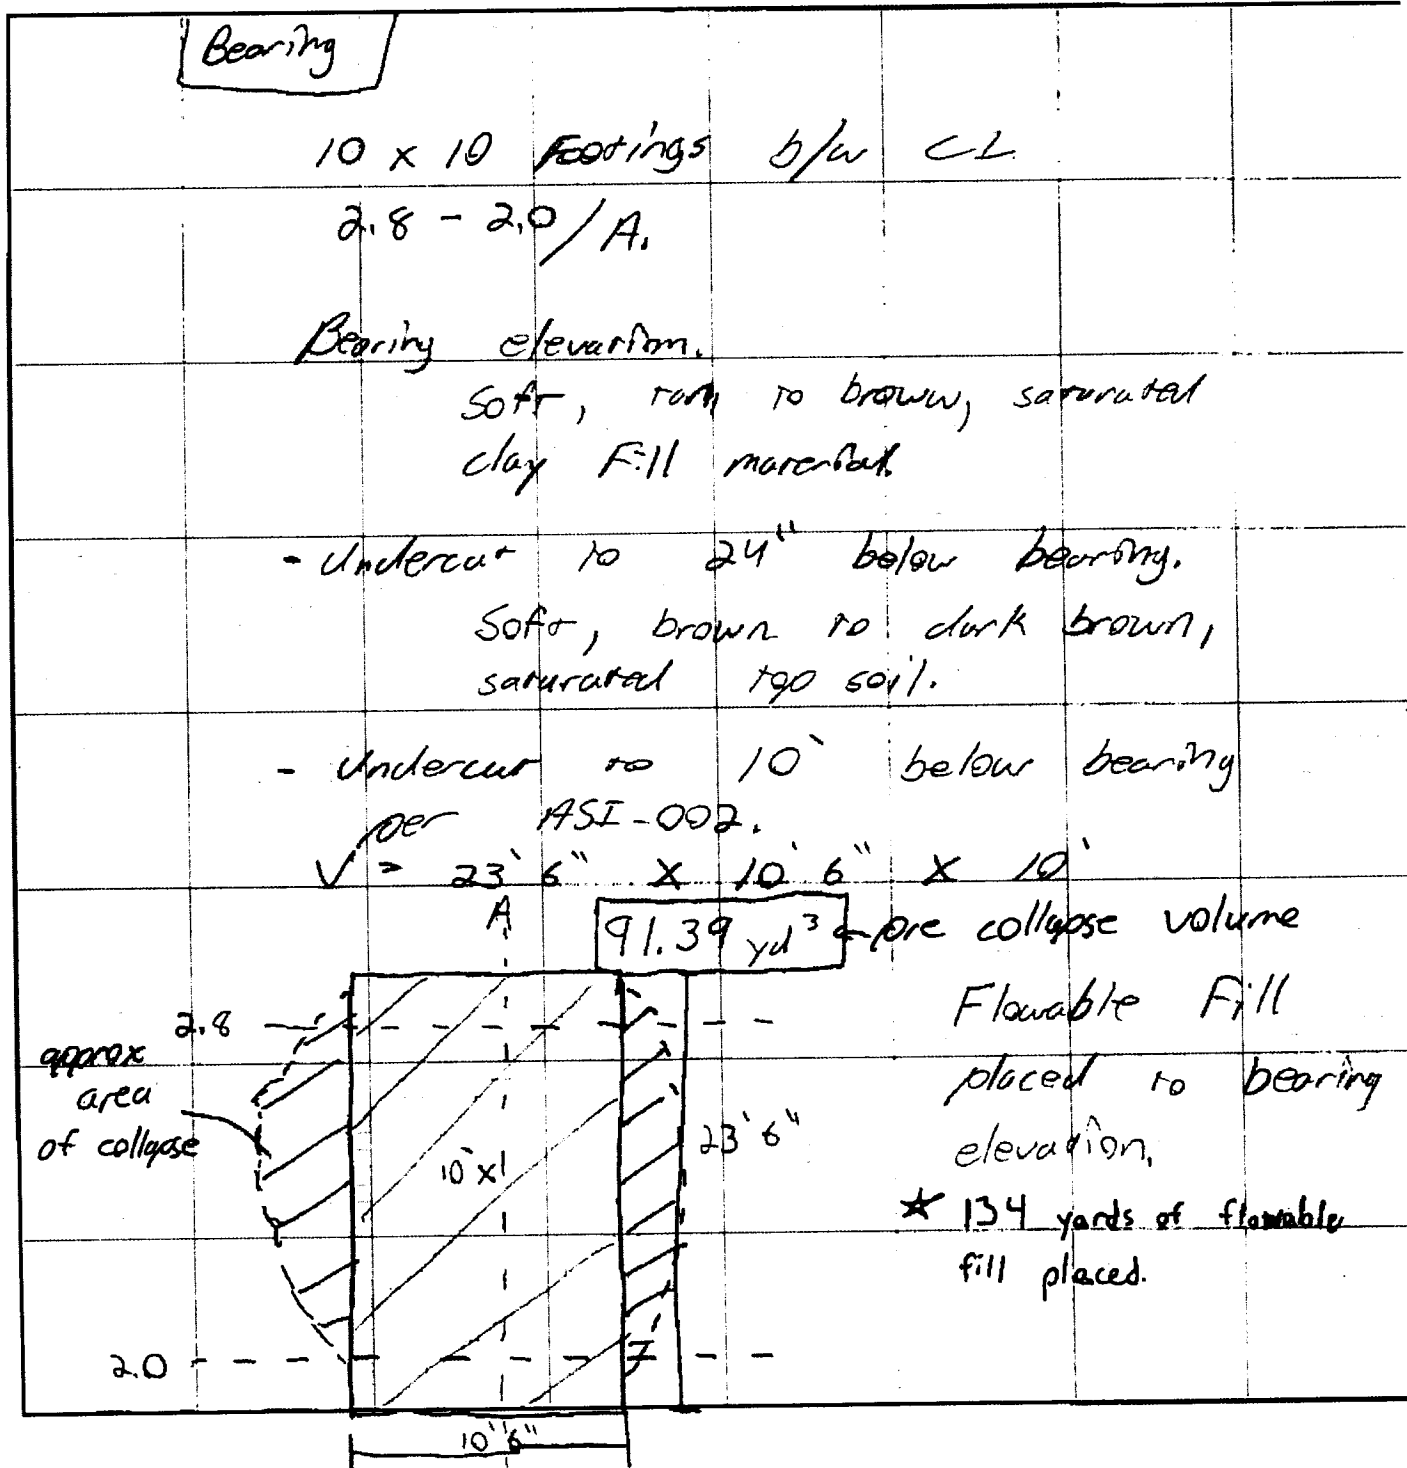 Bearing
10 x 10 Footings b/w CL
2.8 - 2.0/A.
Bearing elevation.
Soft, tan to brown, saturated
clay Fill material.
- Undercut to 24" below bearing.
Soft, brown to dark brown,
saturated top soil.
- Undercut to 10' below bearing
per ASI-002.
V = 23' 6" x 10' 6" x 10'
A
91.39 yd³ ← pre collapse volume
Flowable Fill
placed to bearing
elevation.
2.8
approx
area
of collapse
10' x
23' 6"
* 134 yards of flowable
fill placed.
2.0
10' 6"